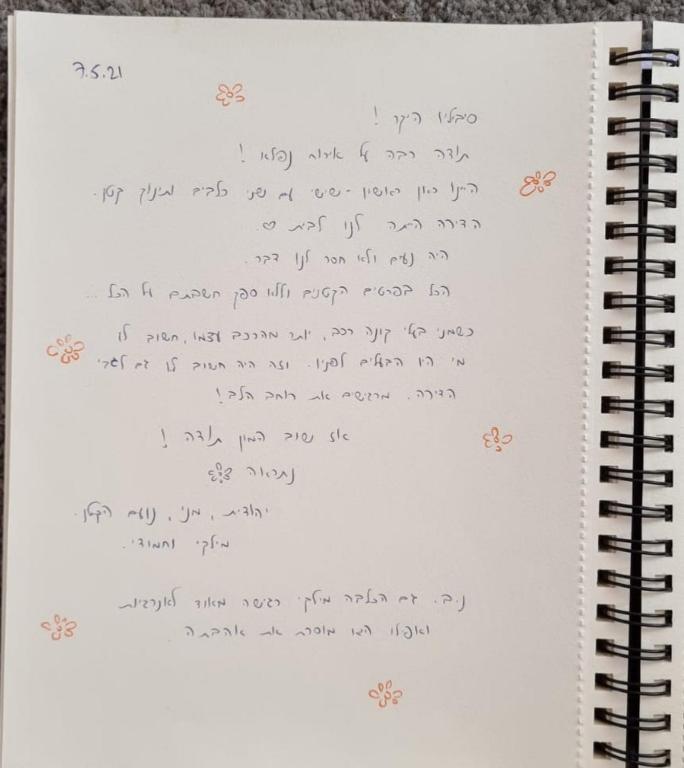 7.5.21
סיבליו היקר !
תודה רבה על אירוח נפלא !
היינו כאן ראשון - שישי עם שני כלבים ותינוק קטן.
הדירה הייתה לנו לבית ♡.
היה נעים ולא חסר לנו דבר.
הכל בפרטים הקטנים וללא ספק חשבתם על הכל ...
כשמני בעלי קונה רכב, יותר מהרכב עצמו, חשוב לו
מי היו הבעלים לפניו. וזה היה חשוב לו גם לגבי
הדירה. מרגישים את רוחב הלב!
אז שוב המון תודה !
נתראה
יהודית, מני, נועם הקטן.
מילקי וחמודי.
נ.ב. גם הכלבה מילקי רגישה מאוד לאנרגיות
ואפילו היא מוסרת את אהבתה